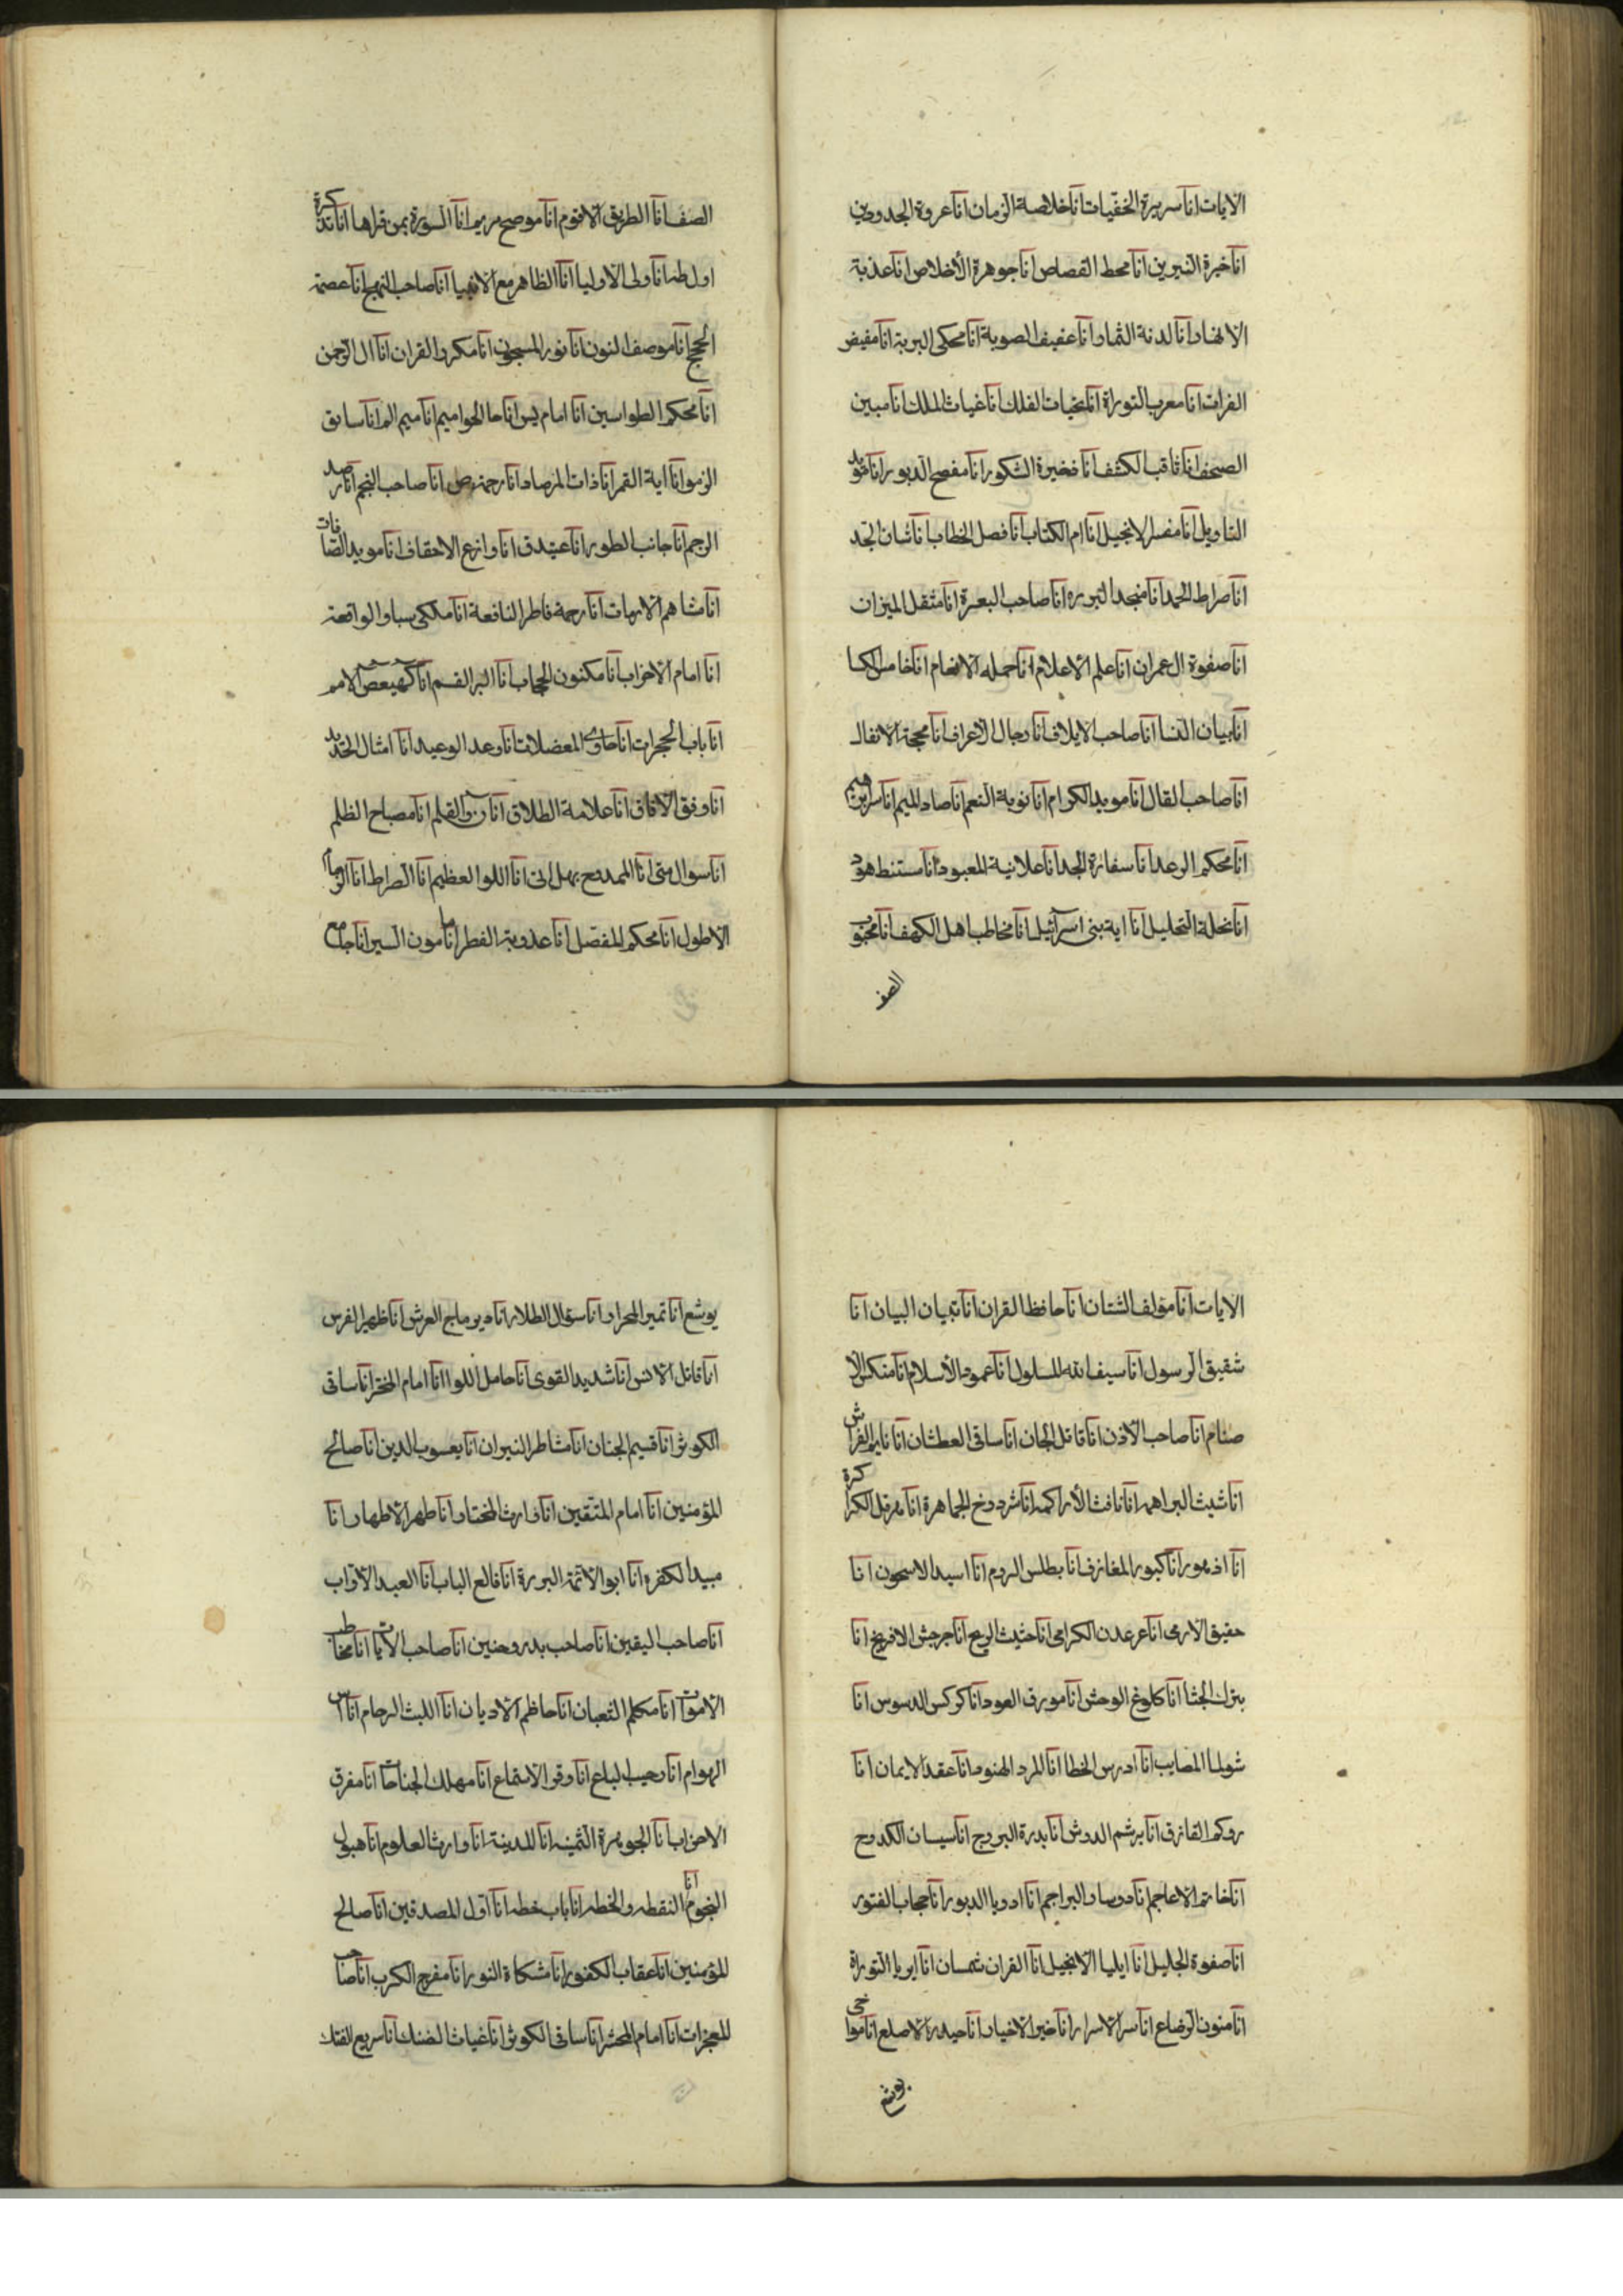 الايات انا سريرة الخفيات انا خلاصة الزمان انا عروة الجدودين
انا خيرة النيرين انا محط القصاص انا جوهرة الأخلاص انا عذبة
الانهار انا لدنة الثمار انا عفيف الصوبة انا محكى البرية انا مفيض
الفرات انا معرب التوراة انا غياث الملك انا مبين
الصحف انا ثاقب الكشف انا مفصح الزبور انا مؤيد
التاويل انا مفسر الانجيل انا ام الكتاب انا فصل الخطاب انا
انا صراط الحمد انا منجد البرره انا صاحب البعرة انا مثقل الميزان
انا صفوة ال عمران انا علم الاعلام انا جمله الانعام انا خامس الكسا
انا بيان النسا انا صاحب الايلاف انا رجال الأعراف انا محجة الانفال
انا صاحب القال انا مويد الكرام انا توبة النعم انا صاد الميم انا سر ابرهيم
انا محكم الرعد انا سفارة المجد انا علانية المعبود انا مستنبط هود
انا نحلة التحليل انا اية بنى اسرائيل انا مخاطب اهل الكهف انا محبوب
الصف
الصف انا الطريق الاقوم انا موضح مريم انا السورة بمن قراها انا تذكرة
اول طه انا ولى الاوليا انا الظاهر مع الانبيا انا صاحب النهج انا عصمة
الحجج انا موصف النون انا نور المسجون انا مكرر القران انا ال الرحمن
انا محكم الطواسين انا امام يس انا حا الحواميم انا ميم الم انا سابق
الزمر انا اية القمر انا ذات المرصاد انا رحمة ص انا صاحب النجم انا رصد
الرجم انا جانب الطور انا عتيد ق انا وازع الاحقاف انا مويد الصافات
انا شاهم الابهات انا رحمة فاطر النافعة انا ملكى سبا والواقعة
انا امام الاحزاب انا مكنون الحجاب انا البر القسم انا كهيعص الامم
انا باب الحجرات انا حاوى المعضلات انا وعد الوعيد انا امثال الحديد
انا وفق الافاق انا علامة الطلاق انا ن والقلم انا مصباح الظلم
انا سوال متى انا الممدوح بهل اتى انا اللو العظيم انا الصراط انا
الاطول انا محكم المفصل انا عذوبة الفطر انا مامون السر انا جامع
الايات انا مؤلف الشتات انا حافظ القران انا تبيان البيان انا
شقيق الرسول انا سيف الله المسلول انا عمود الأسلام انا منكس الا
صنام انا صاحب الأذن انا قاتل الجان انا ساقى العطشان انا نايم الفراش
انا شيث البراهمه انا نافث الأراكمه انا شردوخ الجماهرة انا هرقل الكراكرة
انا كبور المغازف انا بطلس الروم انا اسيد الاسحون انا
حقيق الارمى انا عرعدن الكرامى انا حثيث الريح انا جرجش الافريخ انا
بترك الجثا انا كلوغ الوحش انا مورق العود انا كوكس الدسوس انا
شوليا المصايب انا ادرس الخطا انا المرد الهنود انا عقد الايمان انا
زوكم القازق انا برشم الدوش انا بدرة البروج انا سيسان الكدوح
انا خاتم الاعاجم انا دوسار البراجم انا ادوبا الدبور انا حجاب الفتور
انا صفوة الجليل انا ايليا الانجيل انا القران شمسان انا ابريا التوراة
انا منون الرضاع انا سر الاسرار انا خير الاخيار انا حيدر الاصلع انا مواخى
يوشع
يوشع انا تمير المحراب انا سؤال الطلاب انا ديوماج العرش انا ظهير الفرس
انا قاتل الانس انا شديد القوى انا حامل اللوا انا امام المحشر انا ساقى
الكوثر انا قسيم الجنان انا مشاطر النيران انا يعسوب الدين انا صالح
المؤمنين انا امام المتقين انا وارث المختار انا طهر الاطهار انا
مبيد الكفره انا ابو الائمة البررة انا قالع الباب انا العبد الأواب
انا صاحب اليقين انا صاحب بدر وحنين انا صاحب الايات انا مخاطب
الاموات انا مكلم الثعبان انا حاظم الاديان انا الليث الرحام انا انس
الهوام انا رحيب الباع انا وقر الاسماع انا مهلك الجناحات انا مفرق
الاحزاب انا الجوهرة الثمينه انا المدينة انا وارث العلوم انا هيولى
النجوم انا النقطه والخطه انا باب حطه انا اول المصدقين انا صالح
المؤمنين انا عقاب الكفور انا مشكاة النور انا مفرج الكرب انا صاحب
المعجزات انا امام المحشر انا ساقى الكوثر انا غياث الضنك انا سريع الفتك